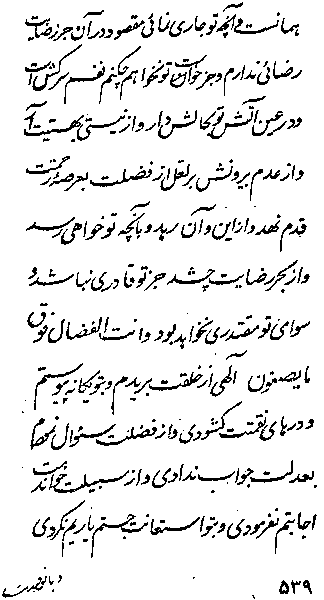 همانست و آنچه تو جاری نمائی مقصود در آن جز رضایت
رضائی ندارم و جز خواست تو نخواهم چکنم نفسم سرکش است
و در عین آتش توکالش دار و از نیستی بهستیت آ
و از عدم برونش بر لعل از فضلت بعرصهٔ رحمتت
قدم نهد و از این و آن رهد و بآنچه تو خواهی رسد
و از بحر رضایت چشد جز تو قادری نباشد و
سوای تو مقتدری نخواهد بود و انت الفضال فوق
ما یصفون الهی از خلقت بریدم و بتو یگانه پیوستم
و درهای نقمتت گشودی و از فضلت سئوال نمودم
بعدلت جواب ندادی و از سبیلت خواندمت
اجابتم نفرمودی و بتو استعانت جستم یاریم نکردی
۵۳۹